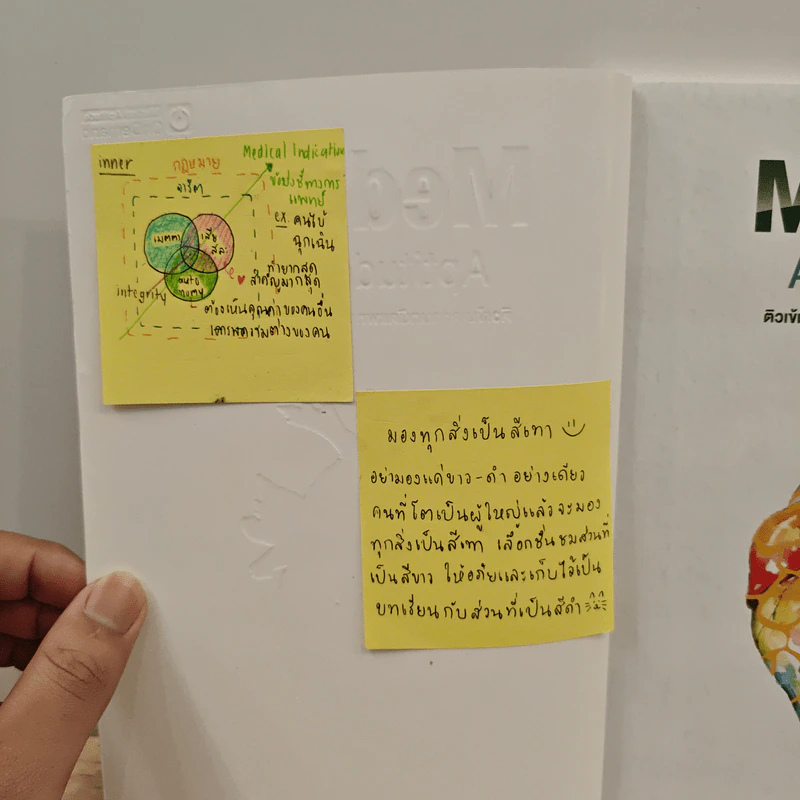 inner
กฎหมาย
Medical Indication
จารีต
ข้อบ่งชี้ทางการ
แพทย์
ex. คนไข้
ฉุกเฉิน
เมตตา
เสีย
สละ
auto
nomy
integrity
ที่ยากสุด
สำคัญมากสุด
ต้องเห็นคุณค่าของคนอื่น
เคารพความต่างของคน
มองทุกสิ่งเป็นสีเทา
อย่ามองแค่ขาว-ดำ อย่างเดียว
คนที่โตเป็นผู้ใหญ่แล้วจะมอง
ทุกสิ่งเป็นสีเทา เลือกชื่นชมส่วนที่
เป็นสีขาว ให้อภัยและเก็บไว้เป็น
บทเรียนกับส่วนที่เป็นสีดำ
Med
Aptitud
M
A
ติวเข้ม